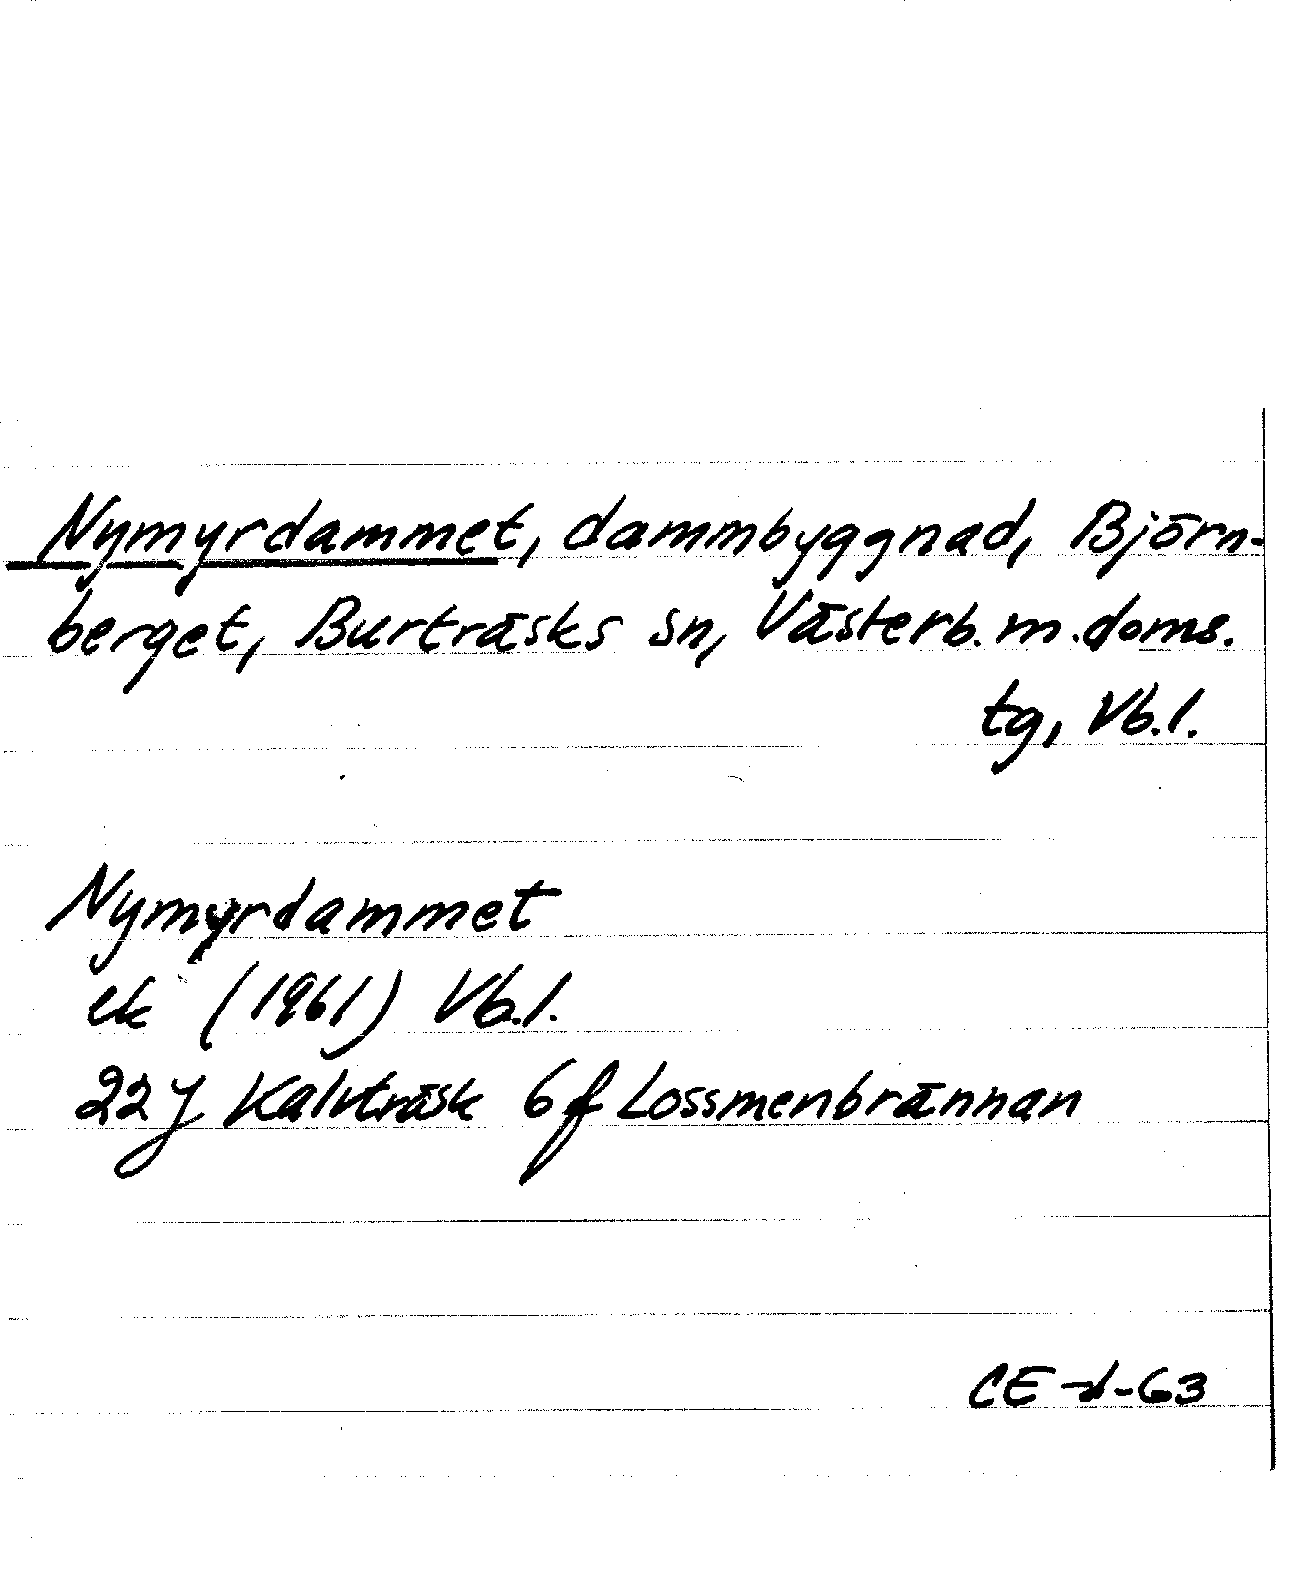 Nymyrdammet, dammbyggnad, Björn-
berget, Burträsks sn, Västerb. m. doms.
tg, Vb. l.
Nymyrdammet
ek (1961) Vb. l.
22 J Kalvträsk 6 f Lossmenbrännan
CE -d-63